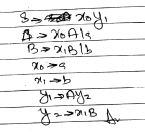 S → x₀y₁
A → x₀A/a
B → x₁B/b
x₀ → a
x₁ → b
y₁ → Ay₂
y₂ → x₁B